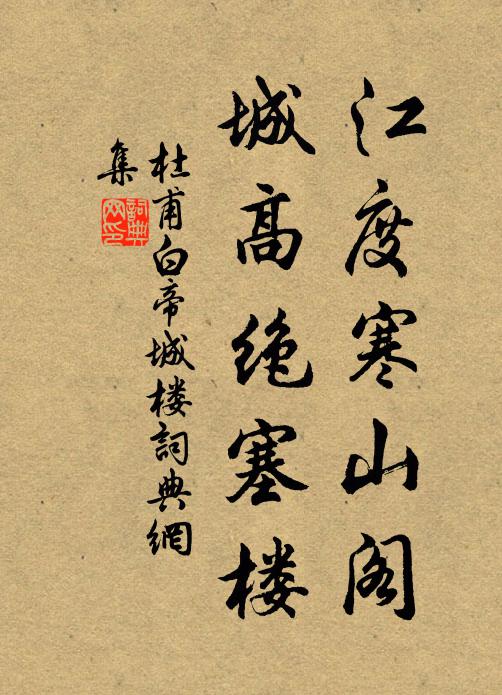 江度寒山阁
城高绝塞楼
杜甫白帝城楼詞典網
集
詞典网印